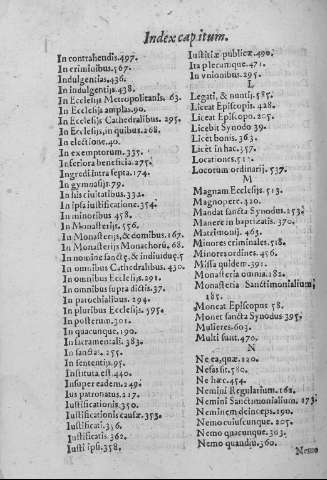 Index capitum.
In contrahendis.497.
In criminibus.567.
Indulgentias.436.
In indulgentijs.438.
In Ecclesijs Metropolitanis. 63.
In Ecclesijs amplas.90.
In Ecclesijs Cathedralibus. 295.
In Ecclesijs, in quibus.268.
In electione.40.
In exemptorum.335.
Inferiora beneficia.275.
Ingredi intra septa.174.
In gymnasijs.79.
In his ciuitatibus.332.
In ipsa iustificatione.354.
In minoribus 458.
In Monasterijs.556.
In Monasterijs, & domibus.167.
In Monasterijs Monachorū, 68.
In nomine sanctę, & indiuiduę.5
In omnibus Cathedralibus. 430.
In omnibus Ecclesijs.291.
In omnibus supra dictis.37.
In parochialibus. 294.
In pluribus Ecclesijs. 595.
In posterum.301.
In quacunque.190.
In sacramentali. 383.
In sanctas. 255.
In sententijs.95.
Instituta est.440.
Insuper eadem.249.
Ius patronatus.217.
Iustificationis.350.
Iustificationis causæ.353.
Iustificati.356.
Iustificatis.362.
Iusti ipsi.358.
Iustitiæ publicæ.490.
Ita plerumque.471.
In vnionibus.295.
L
Legati, & nuntij.585.
Liceat Episcopis. 428.
Liceat Episcopo.205.
Licebit Synodo 39.
Licet bonis.363.
Licèt in hac.357.
Locationes.512.
Locorum ordinarij. 537.
M
Magnam Ecclesijs.513.
Magnopere.420.
Mandat sancta Synodus.253.
Manere in baptizatis.370.
Matrimonij. 463.
Minores criminales.518.
Minores ordines.456.
Missa quidem.391.
Monasteria omnia.182.
Monasteria Sanctimonialium,
185.
Moneat Episcopus 58.
Monet sancta Synodus 395.
Mulieres.603.
Multi sunt.470.
N
Ne ea, quæ.120.
Nefas sit.580.
Ne hæc.454.
Nemini Regularium.162.
Nemini Sanctimonialium. 173.
Neminem deinceps.190.
Nemo cuiuscunque.205.
Nemo quacunque.303.
Nemo quandiu.360.
Nemo